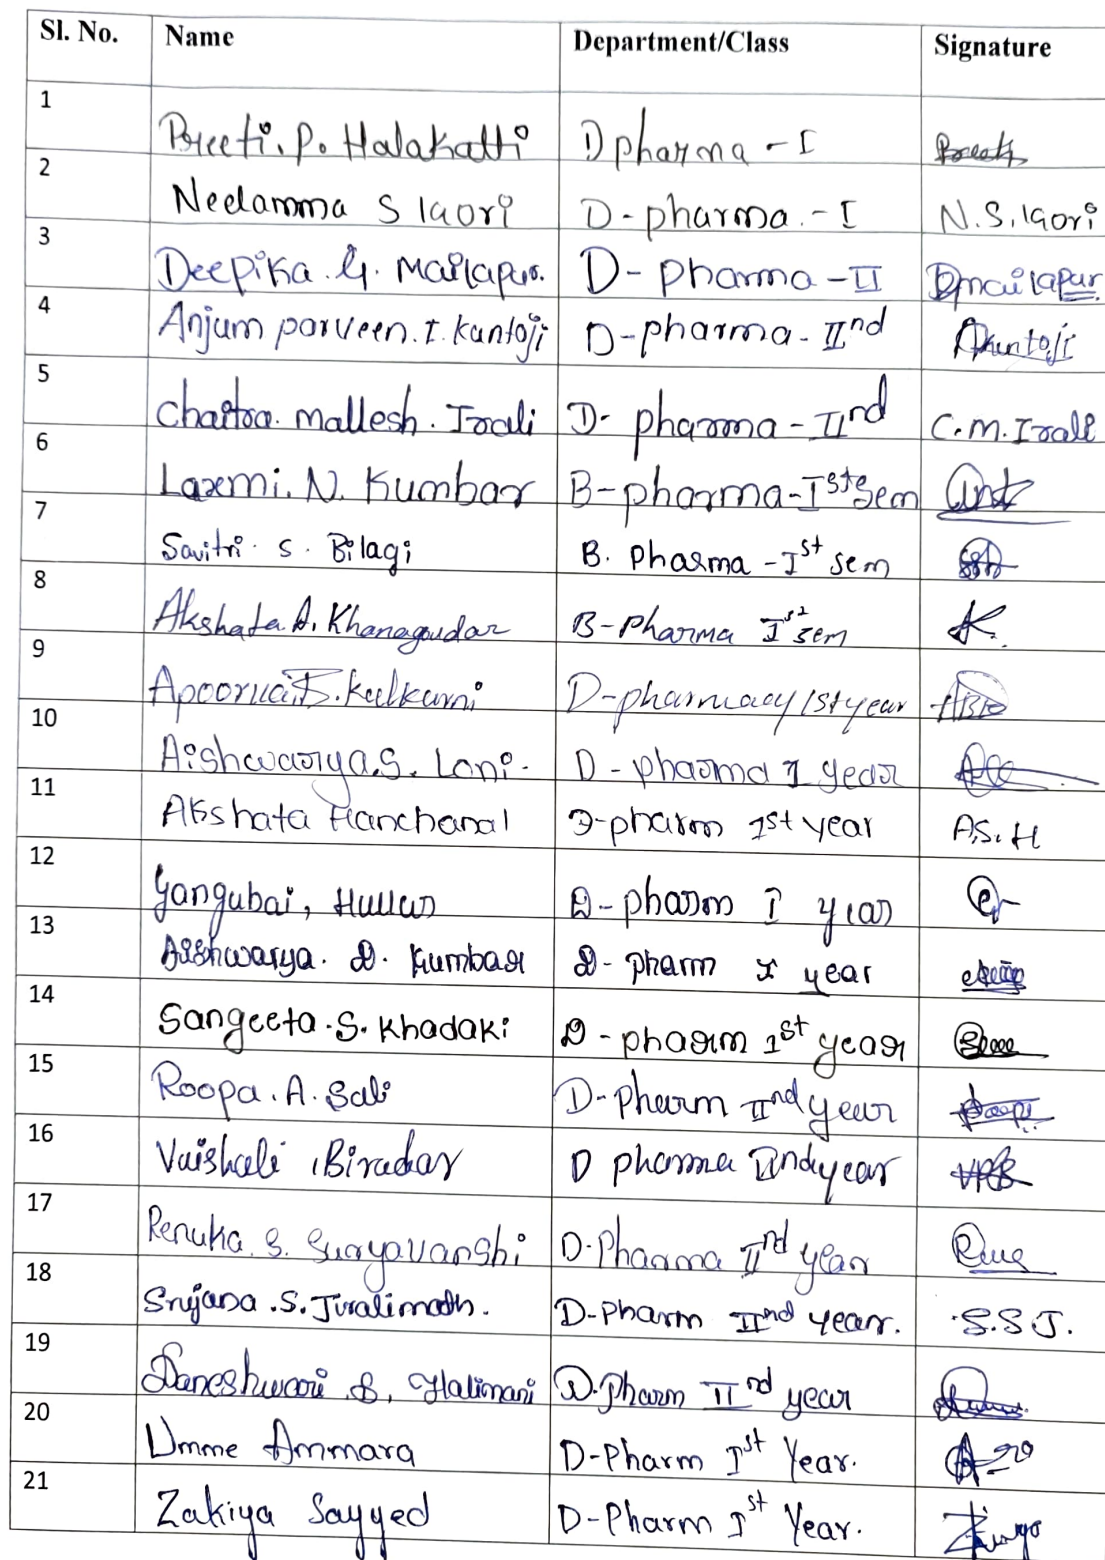 Sl. No. Name Department/Class Signature
1 Preeti. P. Halakatti D pharma - I Preeti
2 Neelamma S lgori D - pharma. - I N. S. lgori
3 Deepika. G. Mailapur. D - pharma - II Dmailapur
4 Anjum parveen. I. kuntoji D - pharma - IInd Akuntoji
5 Chaitra. mallesh. Irali D - pharma - IInd C. m. Irali
6 Laxmi. N. Kumbar B - pharma - Ist sem
7 Savitri. S. Bilagi B. Pharma - Ist sem
8 Akshata A. Khanagoudar B - Pharma Ist sem A.
9 Apoorva. S. kulkarni D - pharmacy 1st year
10 Aishwarya. S. Loni. D - pharma I year
11 Akshata Hanchanal D - pharm 1st year A.S.H
12 Gangubai, Hullur D - pharm I year
13 Aishwarya. D. Kumbar D - pharm I year
14 Sangeeta. S. Khadaki D - pharm 1st year
15 Roopa. A. Sali D - pharm IInd year
16 Vaishali . Biradar D pharma IInd year VPB
17 Renuka. S. Suryavanshi D. Pharma IInd year
18 Srujana . S. Juralimath. D - Pharm IInd year. S. S J.
19 Daneshwari B. Halimani D. Pharm IInd year
20 Umme Ammara D - Pharm Ist Year.
21 Zakiya Sayyed D - Pharm Ist Year.